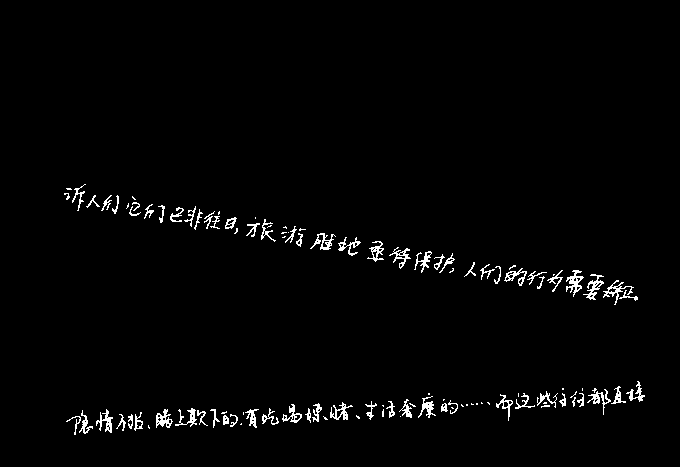 诉人们它们已非往日,旅游胜地亟待保护,人们的行为需要矫正。
隐情不报、瞒上欺下的,有吃喝嫖赌、生活奢糜的……而这些往往都直接